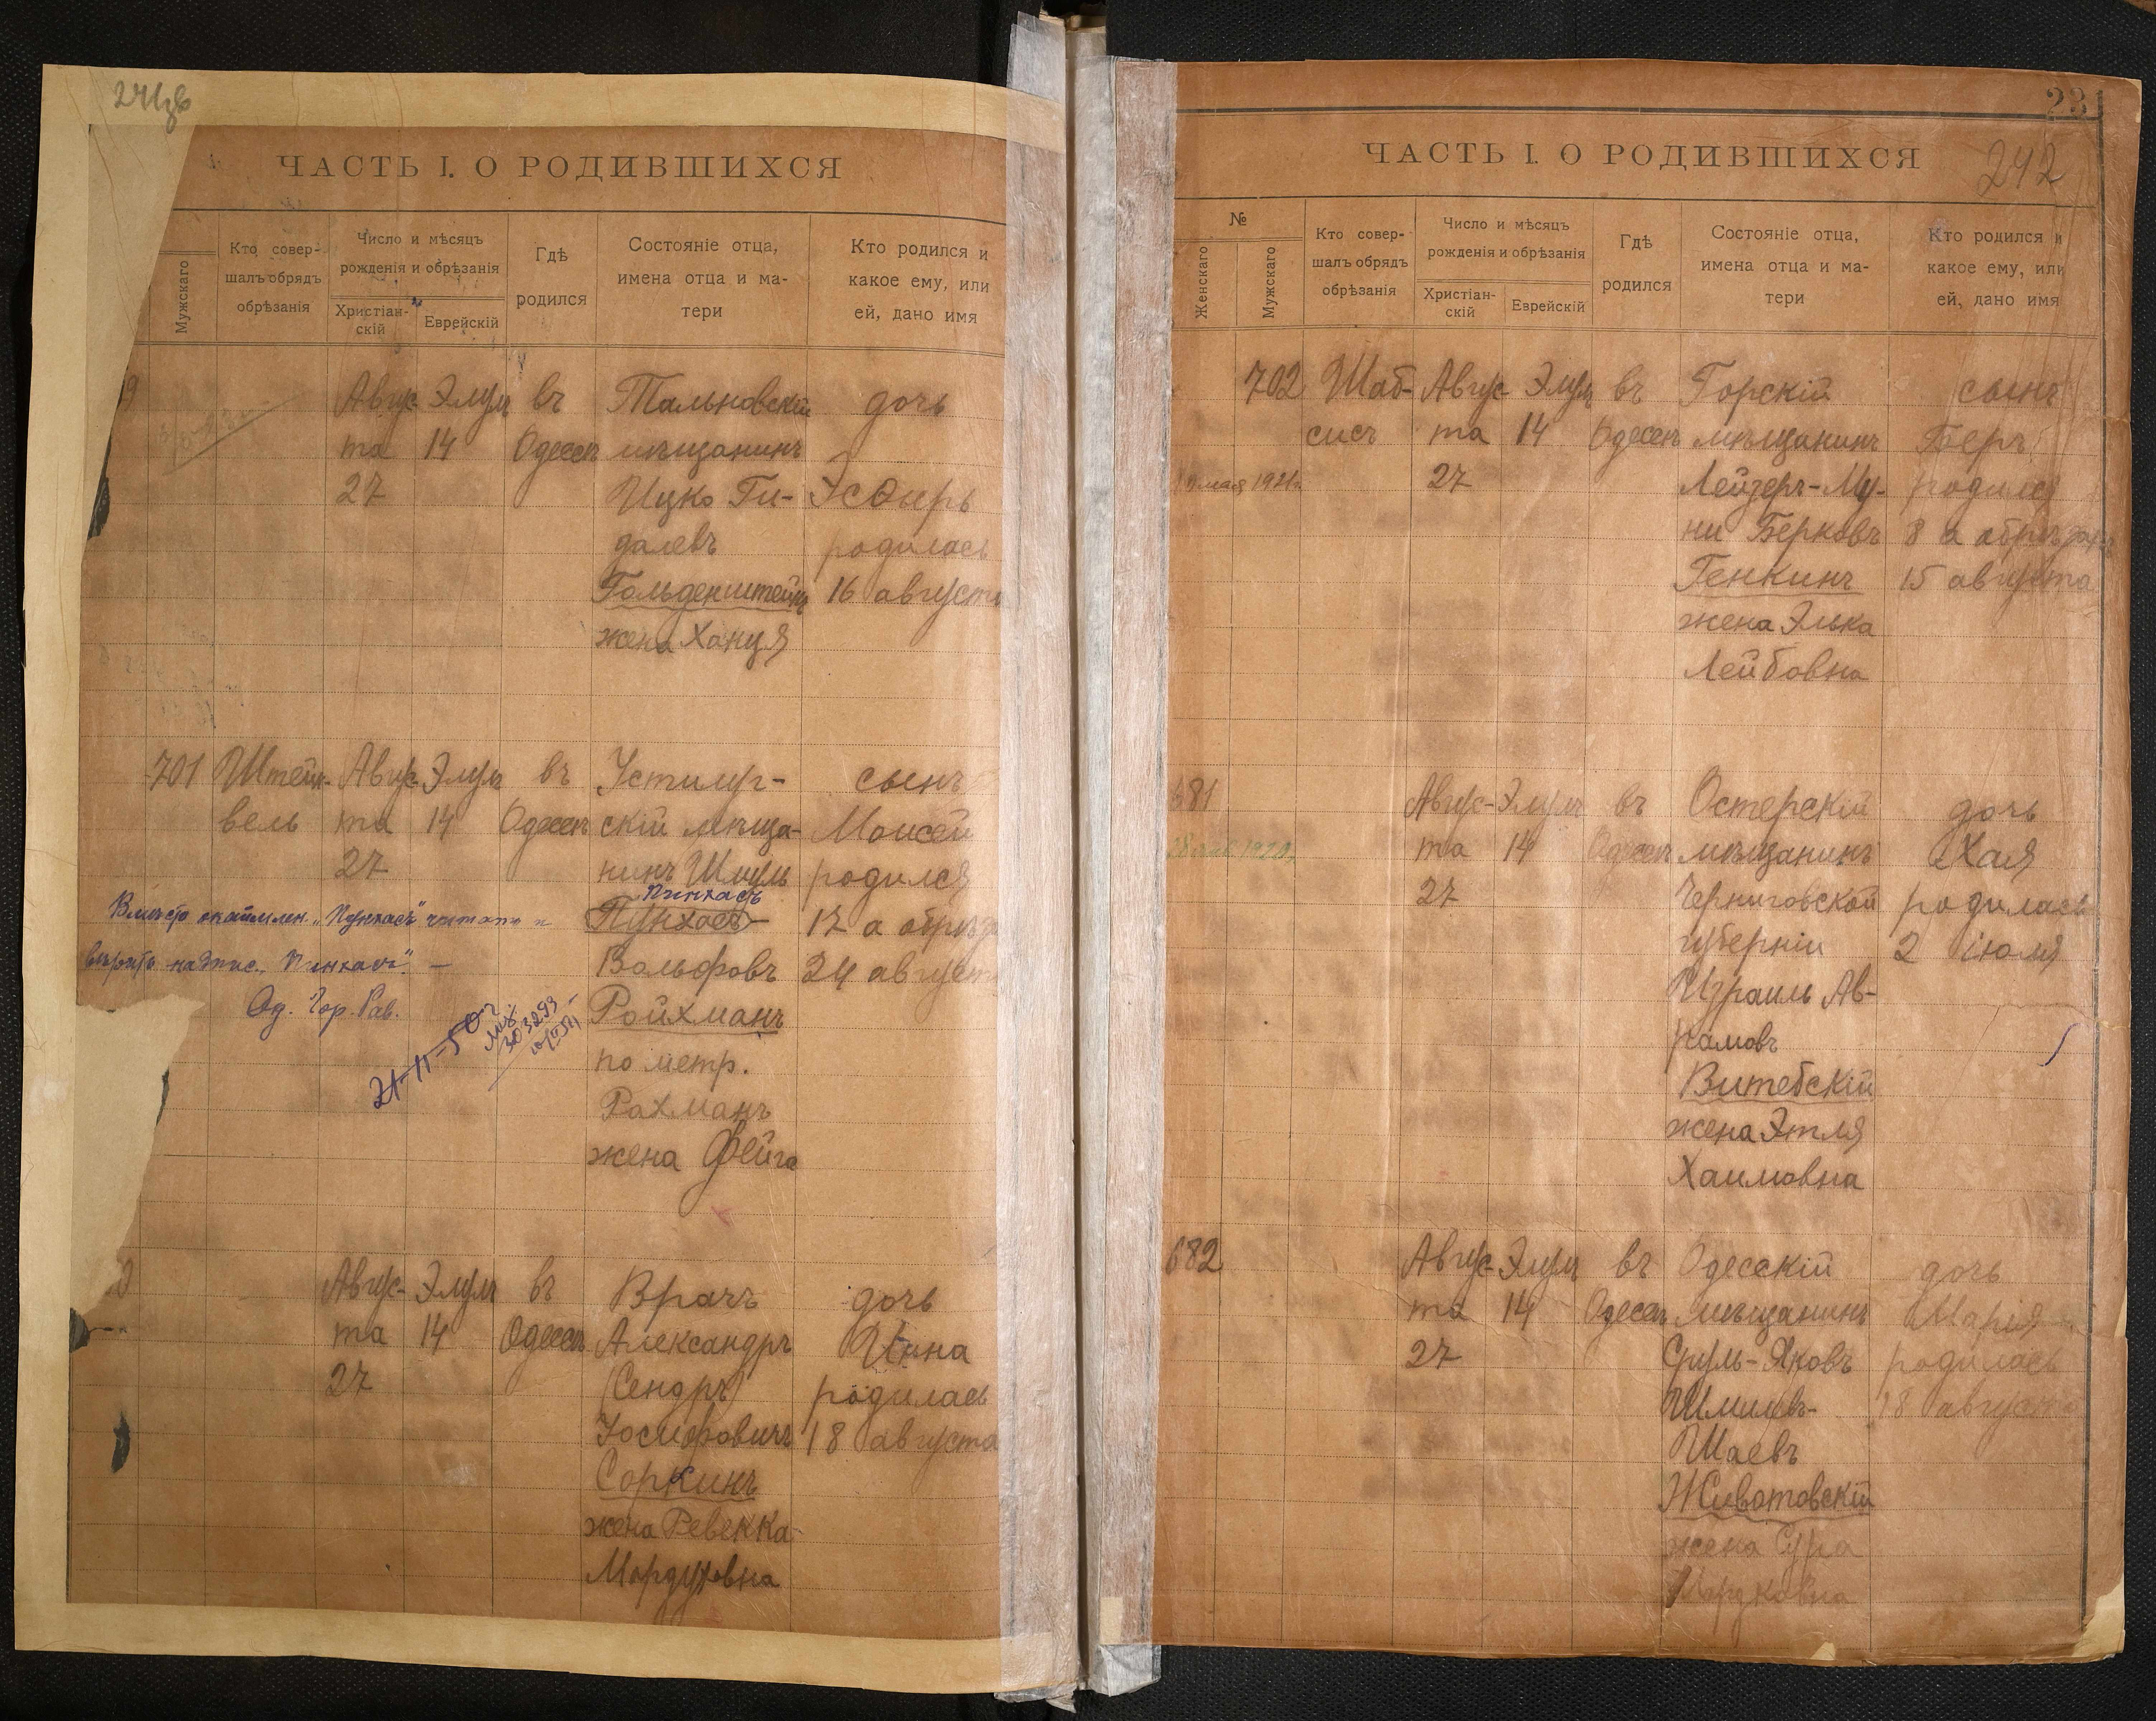 241зв
ЧАСТЬ I. О РОДИВШИХСЯ
Мужскаго
Кто совер-
шалъ обрядъ
обрѣзанія
Число и мѣсяцъ
рожденія и обрѣзанія
Христіан-
скій
Еврейскій
Гдѣ
родился
Состояніе отца,
имена отца и ма-
тери
Кто родился и
какое ему, или
ей, дано имя
9
Авгус-
та
27
Элул
14
въ
Одессѣ
Тальновскій
мѣщанинъ
Ицко Ги-
далевъ
Гольденштейнъ
жена Ханця
дочь
Эсѳирь
родилась
16 августа
701
Штейн-
вель
Авгус-
та
27
Элул
14
въ
Одессѣ
Устилуг-
скій мѣща-
нинъ Шмуль
Пинхасъ
Пунхасъ
Вольфовъ
Ройхманъ
по метр.
Рахманъ
жена Фейга
сынъ
Моисей
родился
17 а обрѣз
24 август
Вмѣсто окаймлен. „Пунхасъ" читать и
вѣрить надпис. „Пинхасъ". —
Од. Гор. Рав.
21-11-50 г
303293
0
Авгус-
та
27
Элул
14
въ
Одессѣ
Врачъ
Александръ
(Сендръ)
Іосифовичъ
Соркинъ
жена Ревекка
Мордуховна
дочь
Инна
родилась
18 августа
23
242
ЧАСТЬ I. О РОДИВШИХСЯ
№
Женскаго
Мужскаго
Кто совер-
шалъ обрядъ
обрѣзанія
Число и мѣсяцъ
рожденія и обрѣзанія
Христіан-
скій
Еврейскій
Гдѣ
родился
Состояніе отца,
имена отца и ма-
тери
Кто родился и
какое ему, или
ей, дано имя
702
мая 1921г.
Шаб-
сисъ
Авгус-
та
27
Элул
14
въ
Одессѣ
Горскій
мѣщанинъ
Лейзеръ-Му-
ни Берковъ
Генкинъ
жена Элька
Лейбовна
сынъ
Беръ
родился
8 а обрѣзанъ
15 августа
681
1920г.
Авгус-
та
27
Элул
14
въ
Одессѣ
Остерскій
мѣщанинъ
Черниговской
губерніи
Израиль Ав-
рамовъ
Витебскій
жена Этля
Хаимовна
дочь
Хая
родилась
2 іюля
682
Авгус-
та
27
Элул
14
въ
Одессѣ
Одесскій
мѣщанинъ
Сруль-Яковъ
Шмилевъ-
Шаевъ
Животовскій
жена Сура
дочь
Марія
родилась
18 августа